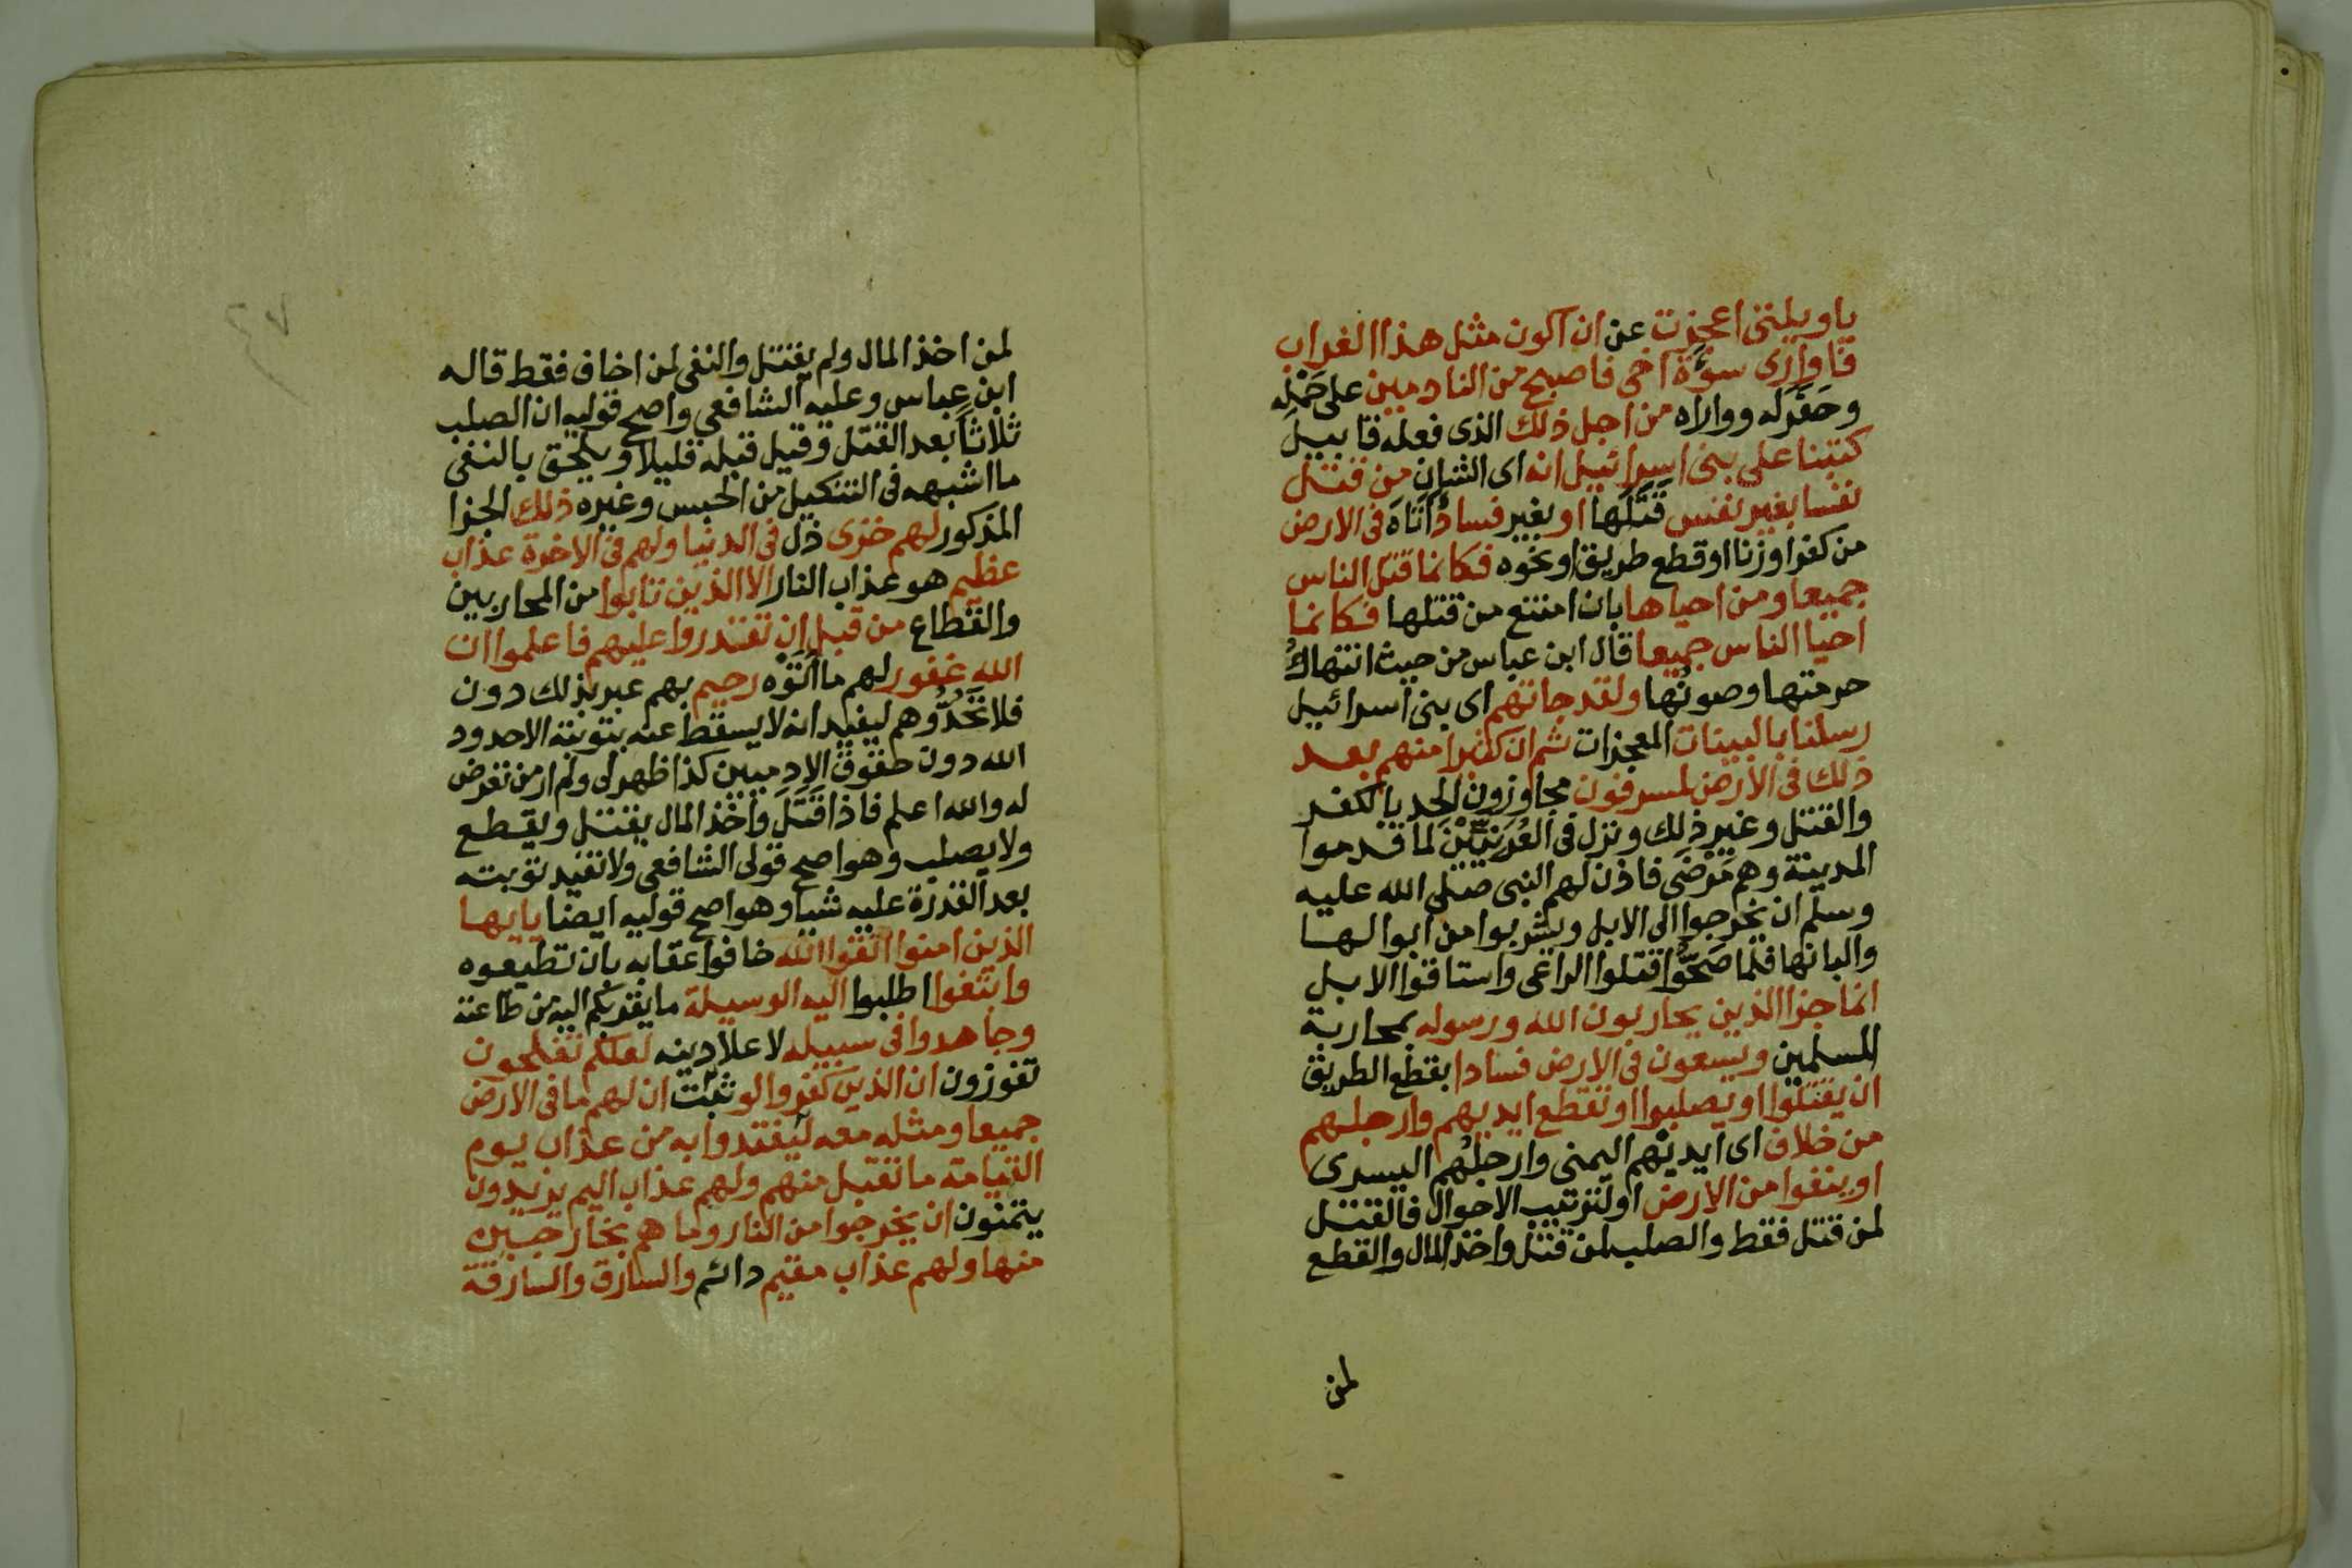 ياويلتى اعجزت عن ان اكون مثل هذا الغراب
فاوارى سوءة اخى فاصبح من النادمين على حمله
وحفر له وواراه من اجل ذلك الذى فعله قابيل
كتبنا على بنى اسرائيل انه اى الشان من قتل
نفسا بغير نفس قتلها او بغير فساد اتاه فى الارض
من كفر او زنا او قطع طريق او نحوه فكانما قتل الناس
جميعا ومن احياها بان امتنع من قتلها فكانما
احيا الناس جميعا قال ابن عباس من حيث انتهاك
حرمتها وصونها ولقد جاتهم اى بنى اسرائيل
رسلنا بالبينات المعجزات ثم ان كثيرا منهم بعد
ذلك فى الارض لمسرفون مجاوزون الحد بالكفر
والقتل وغير ذلك ونزل فى العرنيين لما قدموا
المدينة وهم مرضى فاذن لهم النبى صلى الله عليه
وسلم ان يخرجوا الى الابل ويشربوا من ابوالها
والبانها فلما صحوا قتلوا الراعى واستاقوا الابل
انما جزا الذين يحاربون الله ورسوله بمحاربة
المسلمين ويسعون فى الارض فسادا بقطع الطريق
ان يقتلوا او يصلبوا او تقطع ايديهم وارجلهم
من خلاف اى ايديهم اليمنى وارجلهم اليسرى
او ينفوا من الارض او لترتيب الاحوال فالقتل
لمن قتل فقط والصلب لمن قتل واخذ المال والقطع
لمن
لمن اخذ المال ولم يقتل والنفى لمن اخاف فقط قاله
ابن عباس وعليه الشافعى واصح قوليه ان الصلب
ثلاثا بعد القتل وقيل قبله قليلا ويلحق بالنفى
ما اشبهه فى التنكيل من الحبس وغيره ذلك الجزا
المذكور لهم خزى ذل فى الدنيا ولهم فى الاخرة عذاب
عظيم هو عذاب النار الا الذين تابوا من المحاربين
والقطاع من قبل ان تقتدروا عليهم فاعلموا ان
الله غفور لهم ما اتوه رحيم بهم عبر بذلك دون
فلا تحدوهم ليفيد انه لا يسقط عنه بتوبته الا حدود
الله دون حقوق الادميين كذا ظهر لى ولم ار من تعرض
له والله اعلم فاذا قتل واخذ المال يقتل ويقطع
ولا يصلب وهو اصح قولى الشافعى ولا تفيد توبته
بعد القدرة عليه شيا وهو اصح قوليه ايضا يايها
الذين امنوا اتقوا الله خافوا عقابه بان تطيعوه
وابتغوا اطلبوا اليه الوسيلة ما يقربكم اليه من طاعته
وجاهدوا فى سبيله لاعلا دينه لعلكم تفلحون
تفوزون ان الذين كفروا لو ثبت ان لهم ما فى الارض
جميعا ومثله معه ليفتدوا به من عذاب يوم
القيامة ما تقبل منهم ولهم عذاب اليم يريدون
يتمنون ان يخرجوا من النار وما هم بخارجين
منها ولهم عذاب مقيم دائم والسارق والسارقة